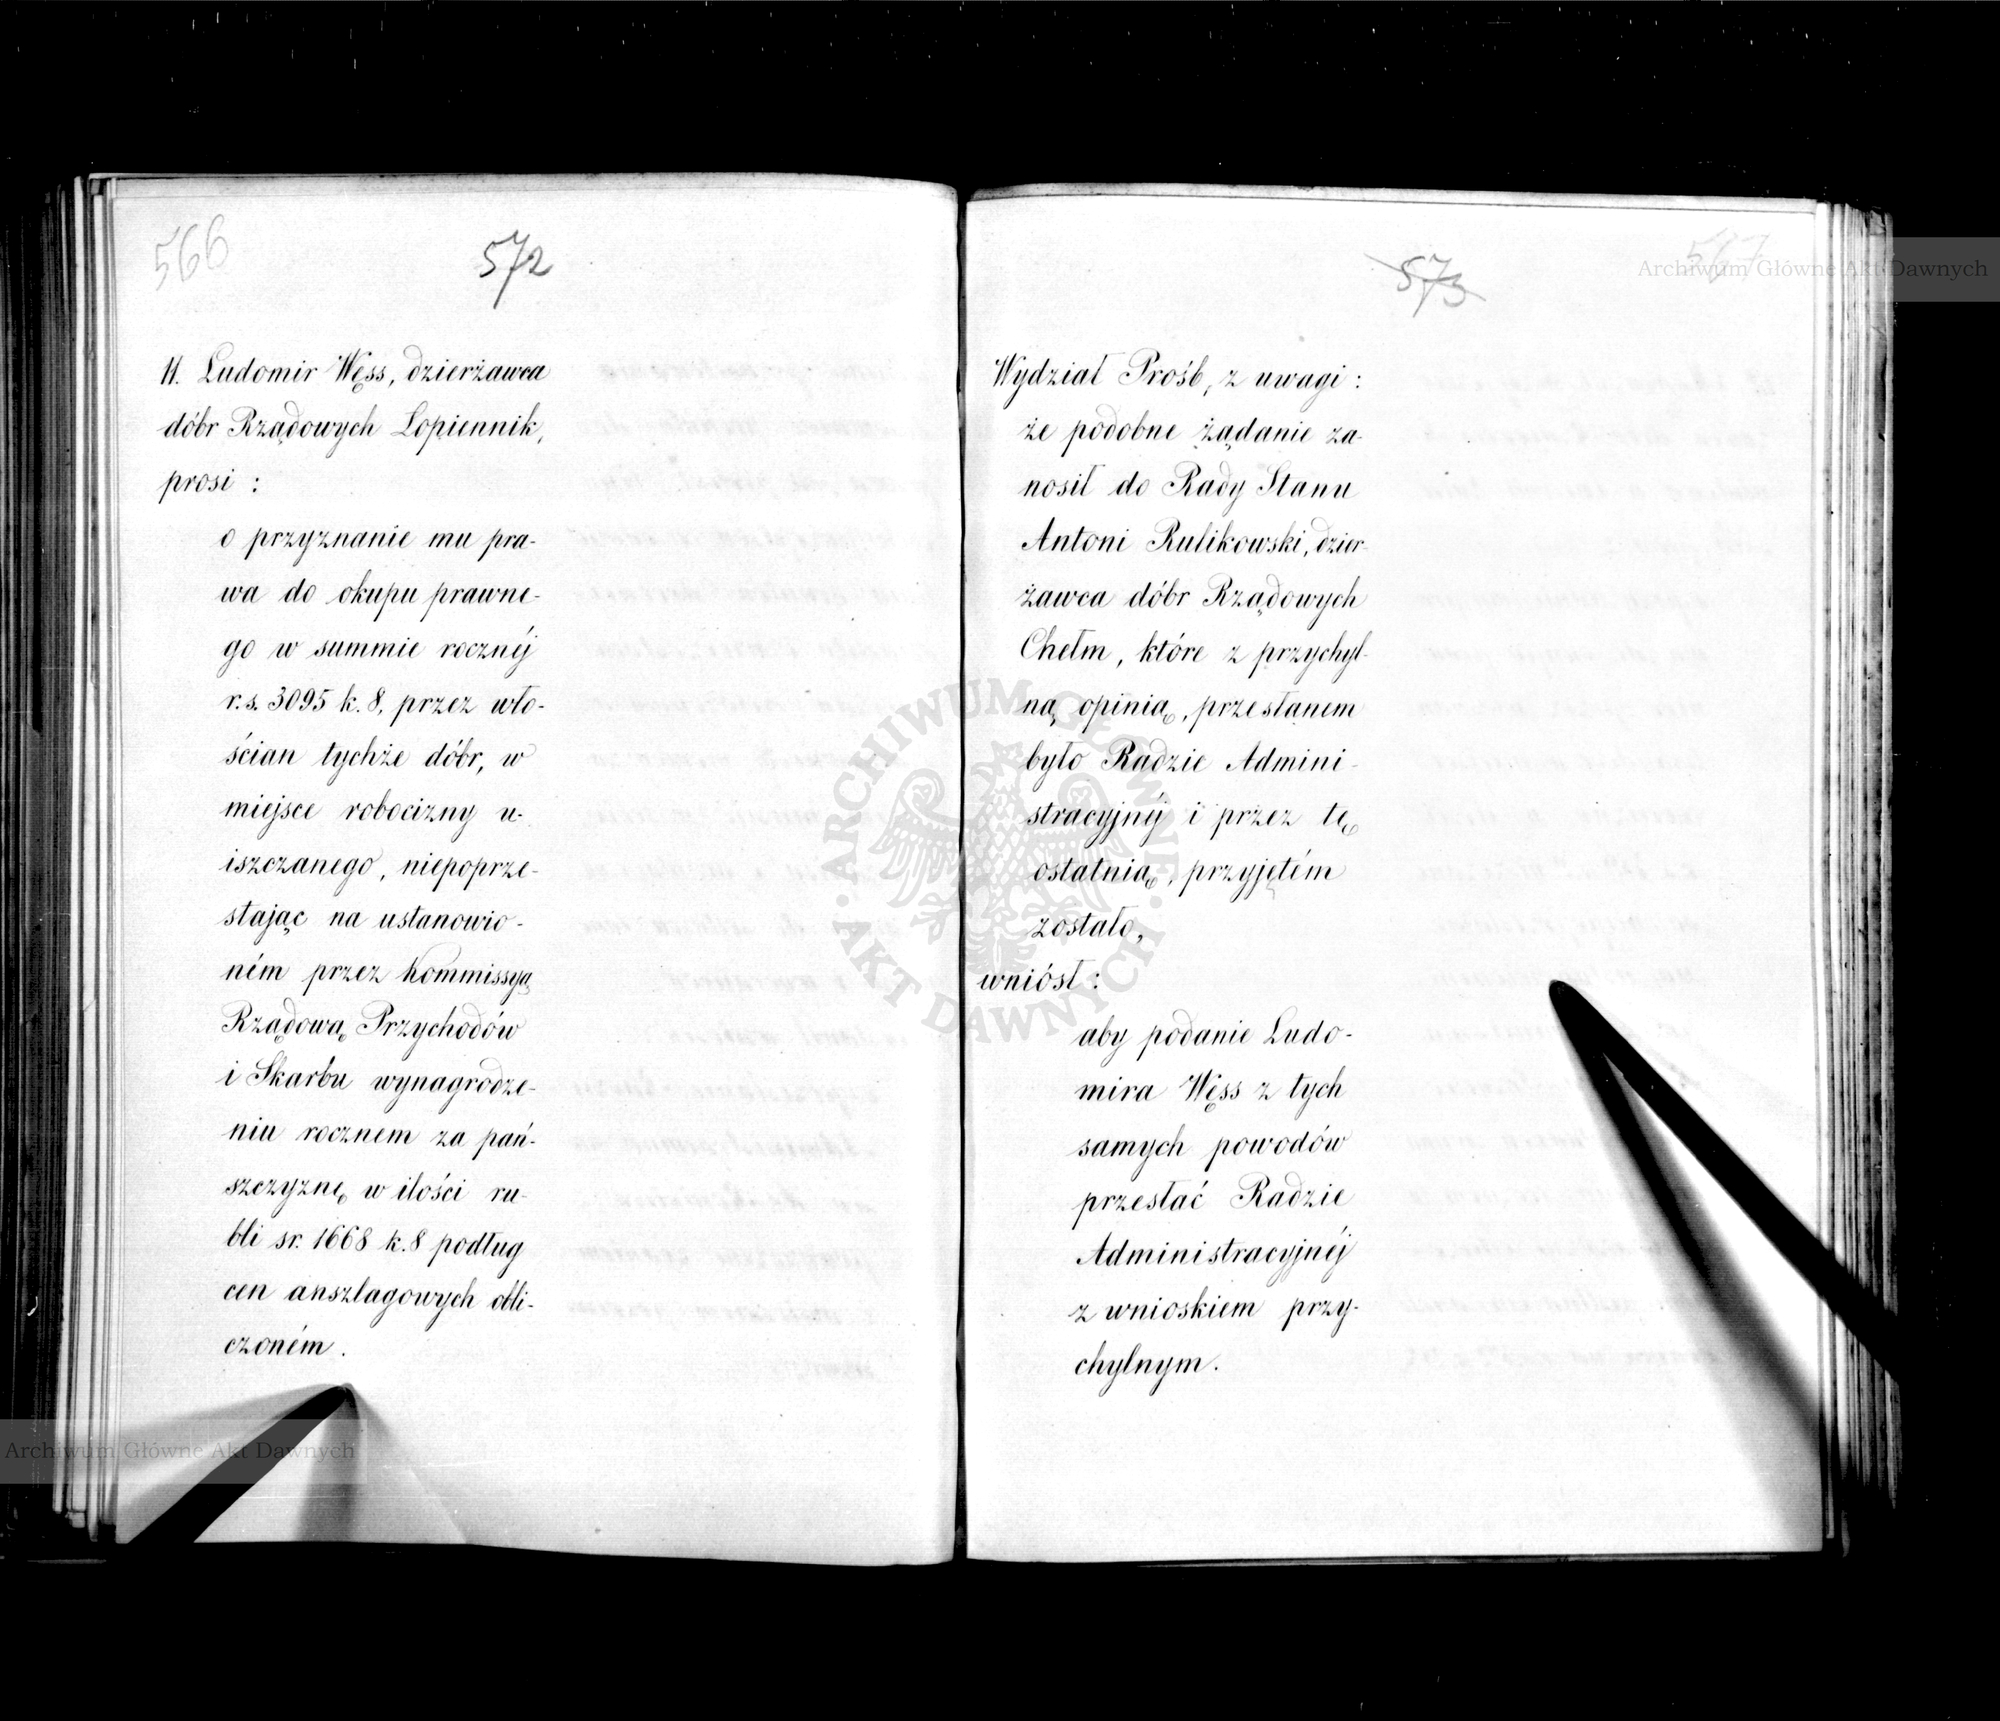 566
572
11. Ludomir Węss, dzierżawca
dóbr Rządowych Łopiennik,
prosi :
o przyznanie mu pra-
wa do okupu prawne-
go w summie rocznéj
r.s. 3095 k. 8, przez wło-
ścian tychże dóbr, w
miejsce robocizny u-
iszczanego, niepoprze-
stając na ustanowio-
ném przez Kommissyą
Rządową Przychodów
i Skarbu wynagrodze-
niu rocznem za pań-
szczyznę w ilości ru-
bli sr. 1668 k. 8 podług
cen anszlagowych obli-
czoném.
573
567
Wydział Próśb, z uwagi :
że podobne żądanie za-
nosił do Rady Stanu
Antoni Rulikowski, dzier-
żawca dóbr Rządowych
Chełm, które z przychyl-
ną opinią, przesłanem
było Radzie Admini-
stracyjnéj i przez tę
ostatnią, przyjętém
zostało,
wniósł :
aby podanie Ludo-
mira Węss z tych
samych powodów
przesłać Radzie
Administracyjnéj
z wnioskiem przy-
chylnym.
Archiwum Główne Akt Dawnych
Archiwum Główne Akt Dawnych
ARCHIWUM GŁÓWNE AKT DAWNYCH